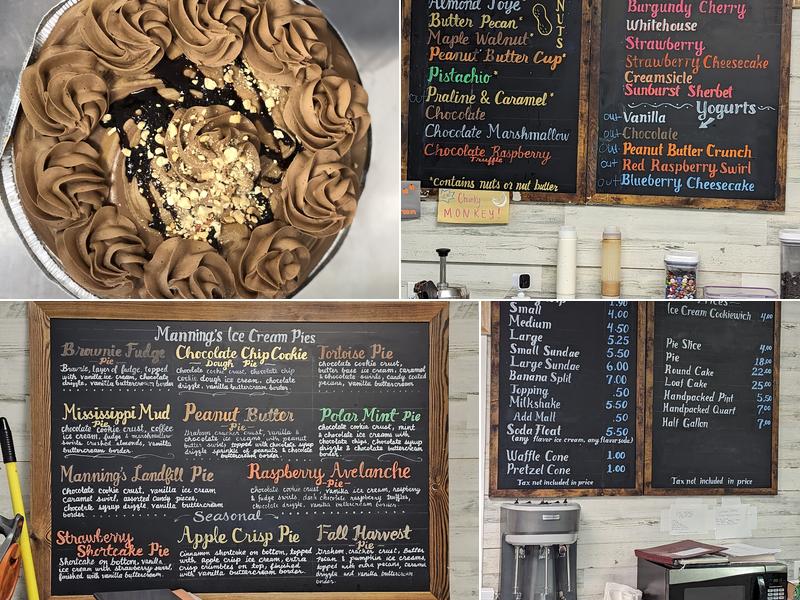 Almond Joye*
Butter Pecan*
Maple Walnut*
Peanut Butter Cup*
Pistachio*
Praline & Caramel*
Chocolate
Chocolate Marshmallow
Chocolate Raspberry
Truffle
*Contains nuts or nut butter
NUTS
Chunky
MONKEY!
Burgundy Cherry
Whitehouse
Strawberry
Strawberry Cheesecake
Creamsicle
Sunburst Sherbet
Yogurts
out Vanilla
out Chocolate
out Peanut Butter Crunch
out Red Raspberry Swirl
out Blueberry Cheesecake
Manning's Ice Cream Pies
Brownie Fudge
Pie
Brownie, layer of fudge, topped
with vanilla ice cream, chocolate
drizzle, vanilla buttercream border
Chocolate Chip Cookie
Dough Pie
chocolate cookie crust, chocolate chip
cookie dough ice cream, chocolate
drizzle, vanilla buttercream border
Tortoise Pie
chocolate cookie crust,
butter base ice cream, caramel
& chocolate swirls, candy coated
pecans, vanilla buttercream
border
Mississippi Mud
Pie
chocolate cookie crust, coffee
ice cream, fudge & marshmallow
swirls, crushed almonds, vanilla
buttercream border
Peanut Butter
Pie
Graham cracker crust, vanilla &
chocolate ice creams with peanut
butter swirls topped with chocolate syrup
drizzle, sprinkle of peanuts & chocolate
buttercream border
Polar Mint Pie
chocolate cookie crust, mint
& chocolate ice creams with
chocolate chips, chocolate syrup
drizzle & chocolate buttercream
border
Manning's Landfill Pie
Chocolate cookie crust, vanilla ice cream
caramel swirl, assorted candy pieces,
chocolate syrup drizzle, vanilla buttercream
border
Raspberry Avalanche
Pie
chocolate cookie crust, vanilla ice cream, raspberry
& fudge swirls, dark chocolate raspberry truffles,
chocolate drizzle, vanilla buttercream border
Seasonal
Strawberry
Shortcake Pie
Shortcake on bottom, vanilla
ice cream with strawberry swirl,
finished with vanilla buttercream
Apple Crisp Pie
Cinnamon shortcake on bottom, topped
with apple crisp ice cream, extra
crisp crumbles on top, finished
with vanilla buttercream border
Fall Harvest
Pie
Graham cracker crust, Butter
Pecan & pumpkin ice creams,
topped with more pecans, caramel
drizzle and vanilla buttercream
border
1.90
Small 4.00
Medium 4.50
Large 5.25
Small Sundae 5.50
Large Sundae 6.00
Banana Split 7.00
Topping .50
Milkshake 5.50
Add Malt .50
Soda Float 5.50
(any flavor ice cream, any flavor soda)
Waffle Cone 1.00
Pretzel Cone 1.00
Tax not included in price
Prices
Ice Cream Cookiewich 4.00
Pie Slice 4.00
Pie 18.00
Round Cake 22.00
Loaf Cake 25.00
Handpacked Pint 5.50
Handpacked Quart 7.00
Half Gallon 7.00
Tax not included in price